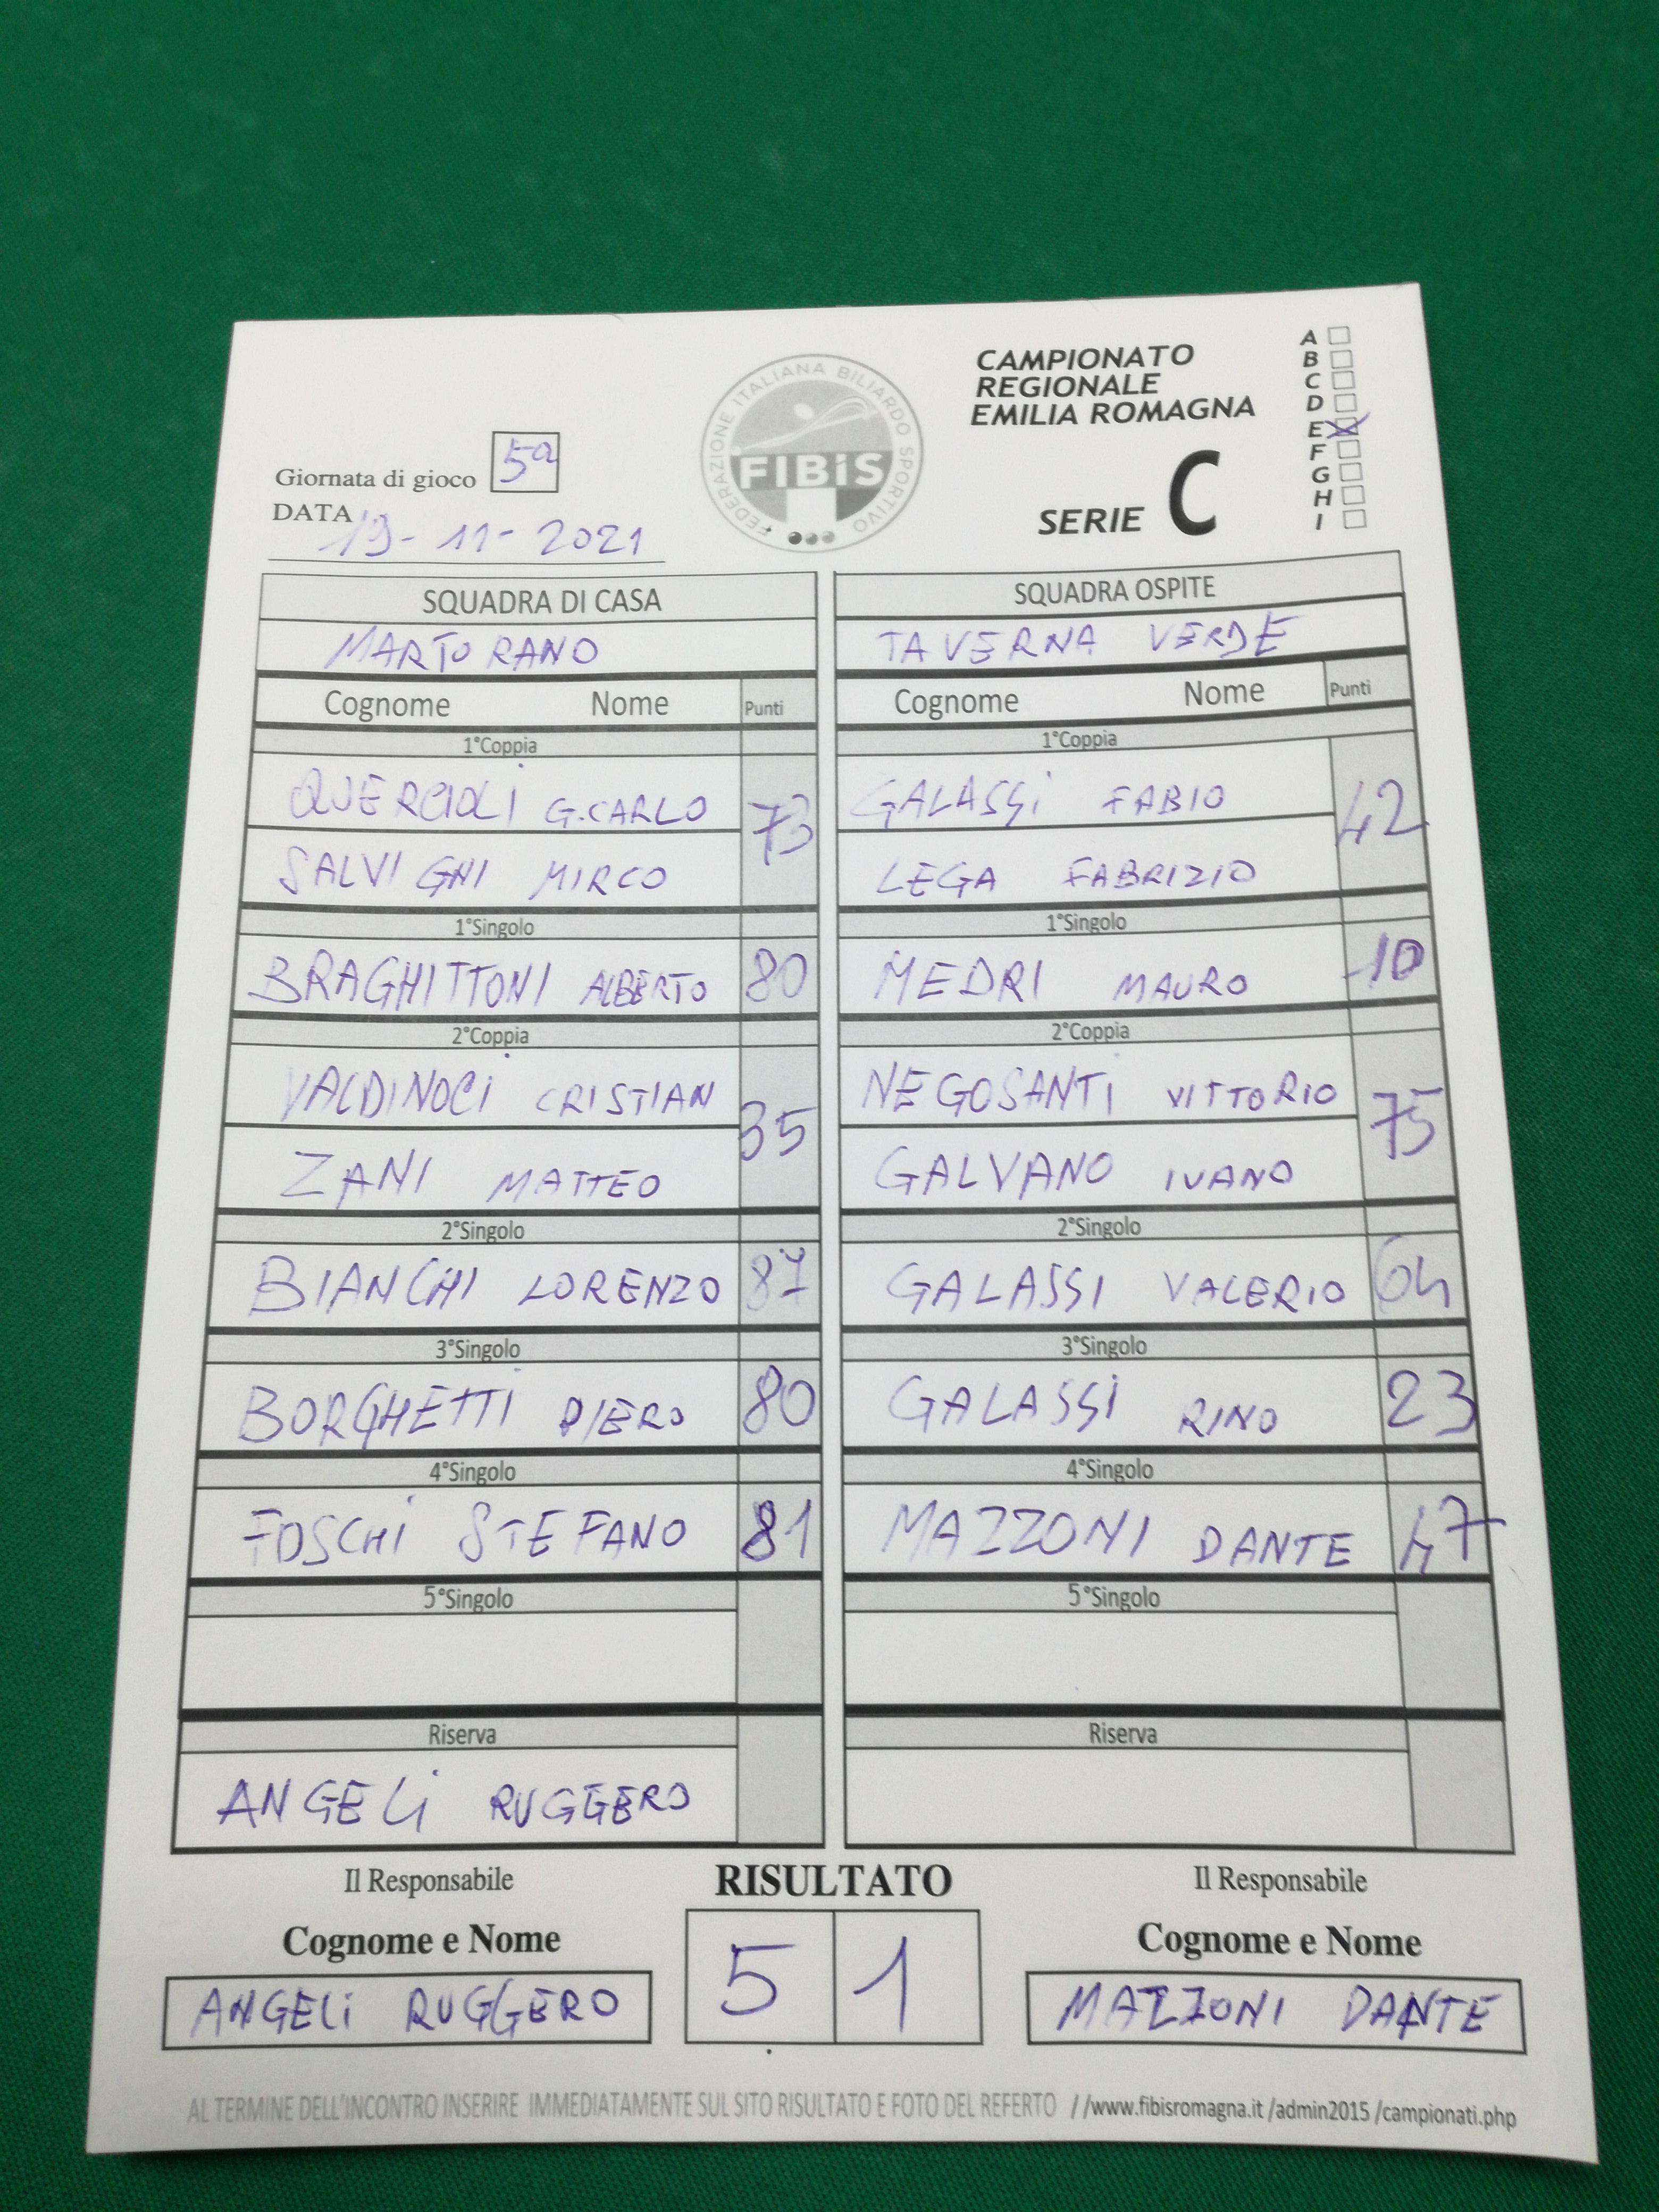 CAMPIONATO
REGIONALE
EMILIA ROMAGNA
SERIE C
A
B
C
D
E
F
G
H
I
FEDERAZIONE ITALIANA BILIARDO SPORTIVO
FIBiS
Giornata di gioco 5a
DATA 19-11-2021
SQUADRA DI CASA SQUADRA OSPITE
MARTORANO TAVERNA VERDE
Cognome Nome Punti Cognome Nome Punti
1°Coppia 1°Coppia
QUERCIOLI G.CARLO 73 GALASSi FABIO 42
SALVIGNI MIRCO LEGA FABRIZIO
1°Singolo 1°Singolo
BRAGHITTONI ALBERTO 80 MEDRI MAURO 10
2°Coppia 2°Coppia
VALDINOCi CRISTIAN 35 NEGOSANTI VITTORIO 75
ZANI MATTEO GALVANO IVANO
2°Singolo 2°Singolo
BIANCHI LORENZO 87 GALASSI VALERIO 64
3°Singolo 3°Singolo
BORGHETTI PIERO 80 GALASSi RINO 23
4°Singolo 4°Singolo
FOSCHi STEFANO 81 MAZZONI DANTE 47
5°Singolo 5°Singolo
Riserva Riserva
ANGELi RUGGERO
Il Responsabile RISULTATO Il Responsabile
Cognome e Nome 5 1 Cognome e Nome
ANGELi RUGGERO MAZZONI DANTE
AL TERMINE DELL'INCONTRO INSERIRE IMMEDIATAMENTE SUL SITO RISULTATO E FOTO DEL REFERTO //www.fibisromagna.it /admin2015 /campionati.php